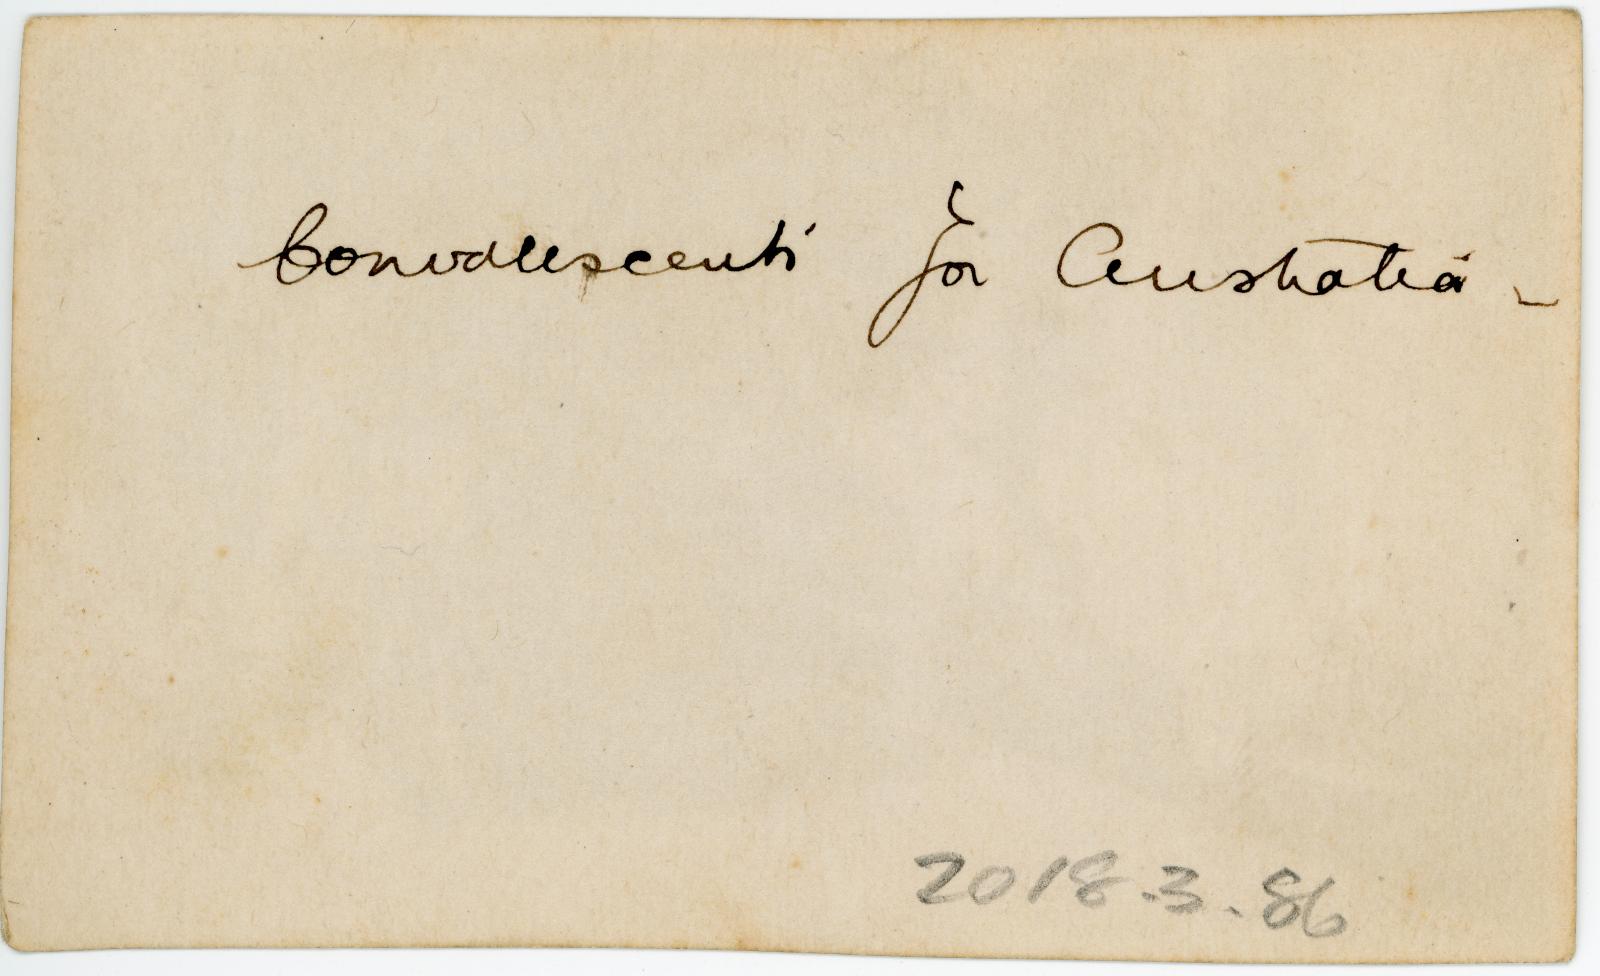 Convalescents for Australia -
2018.3.86